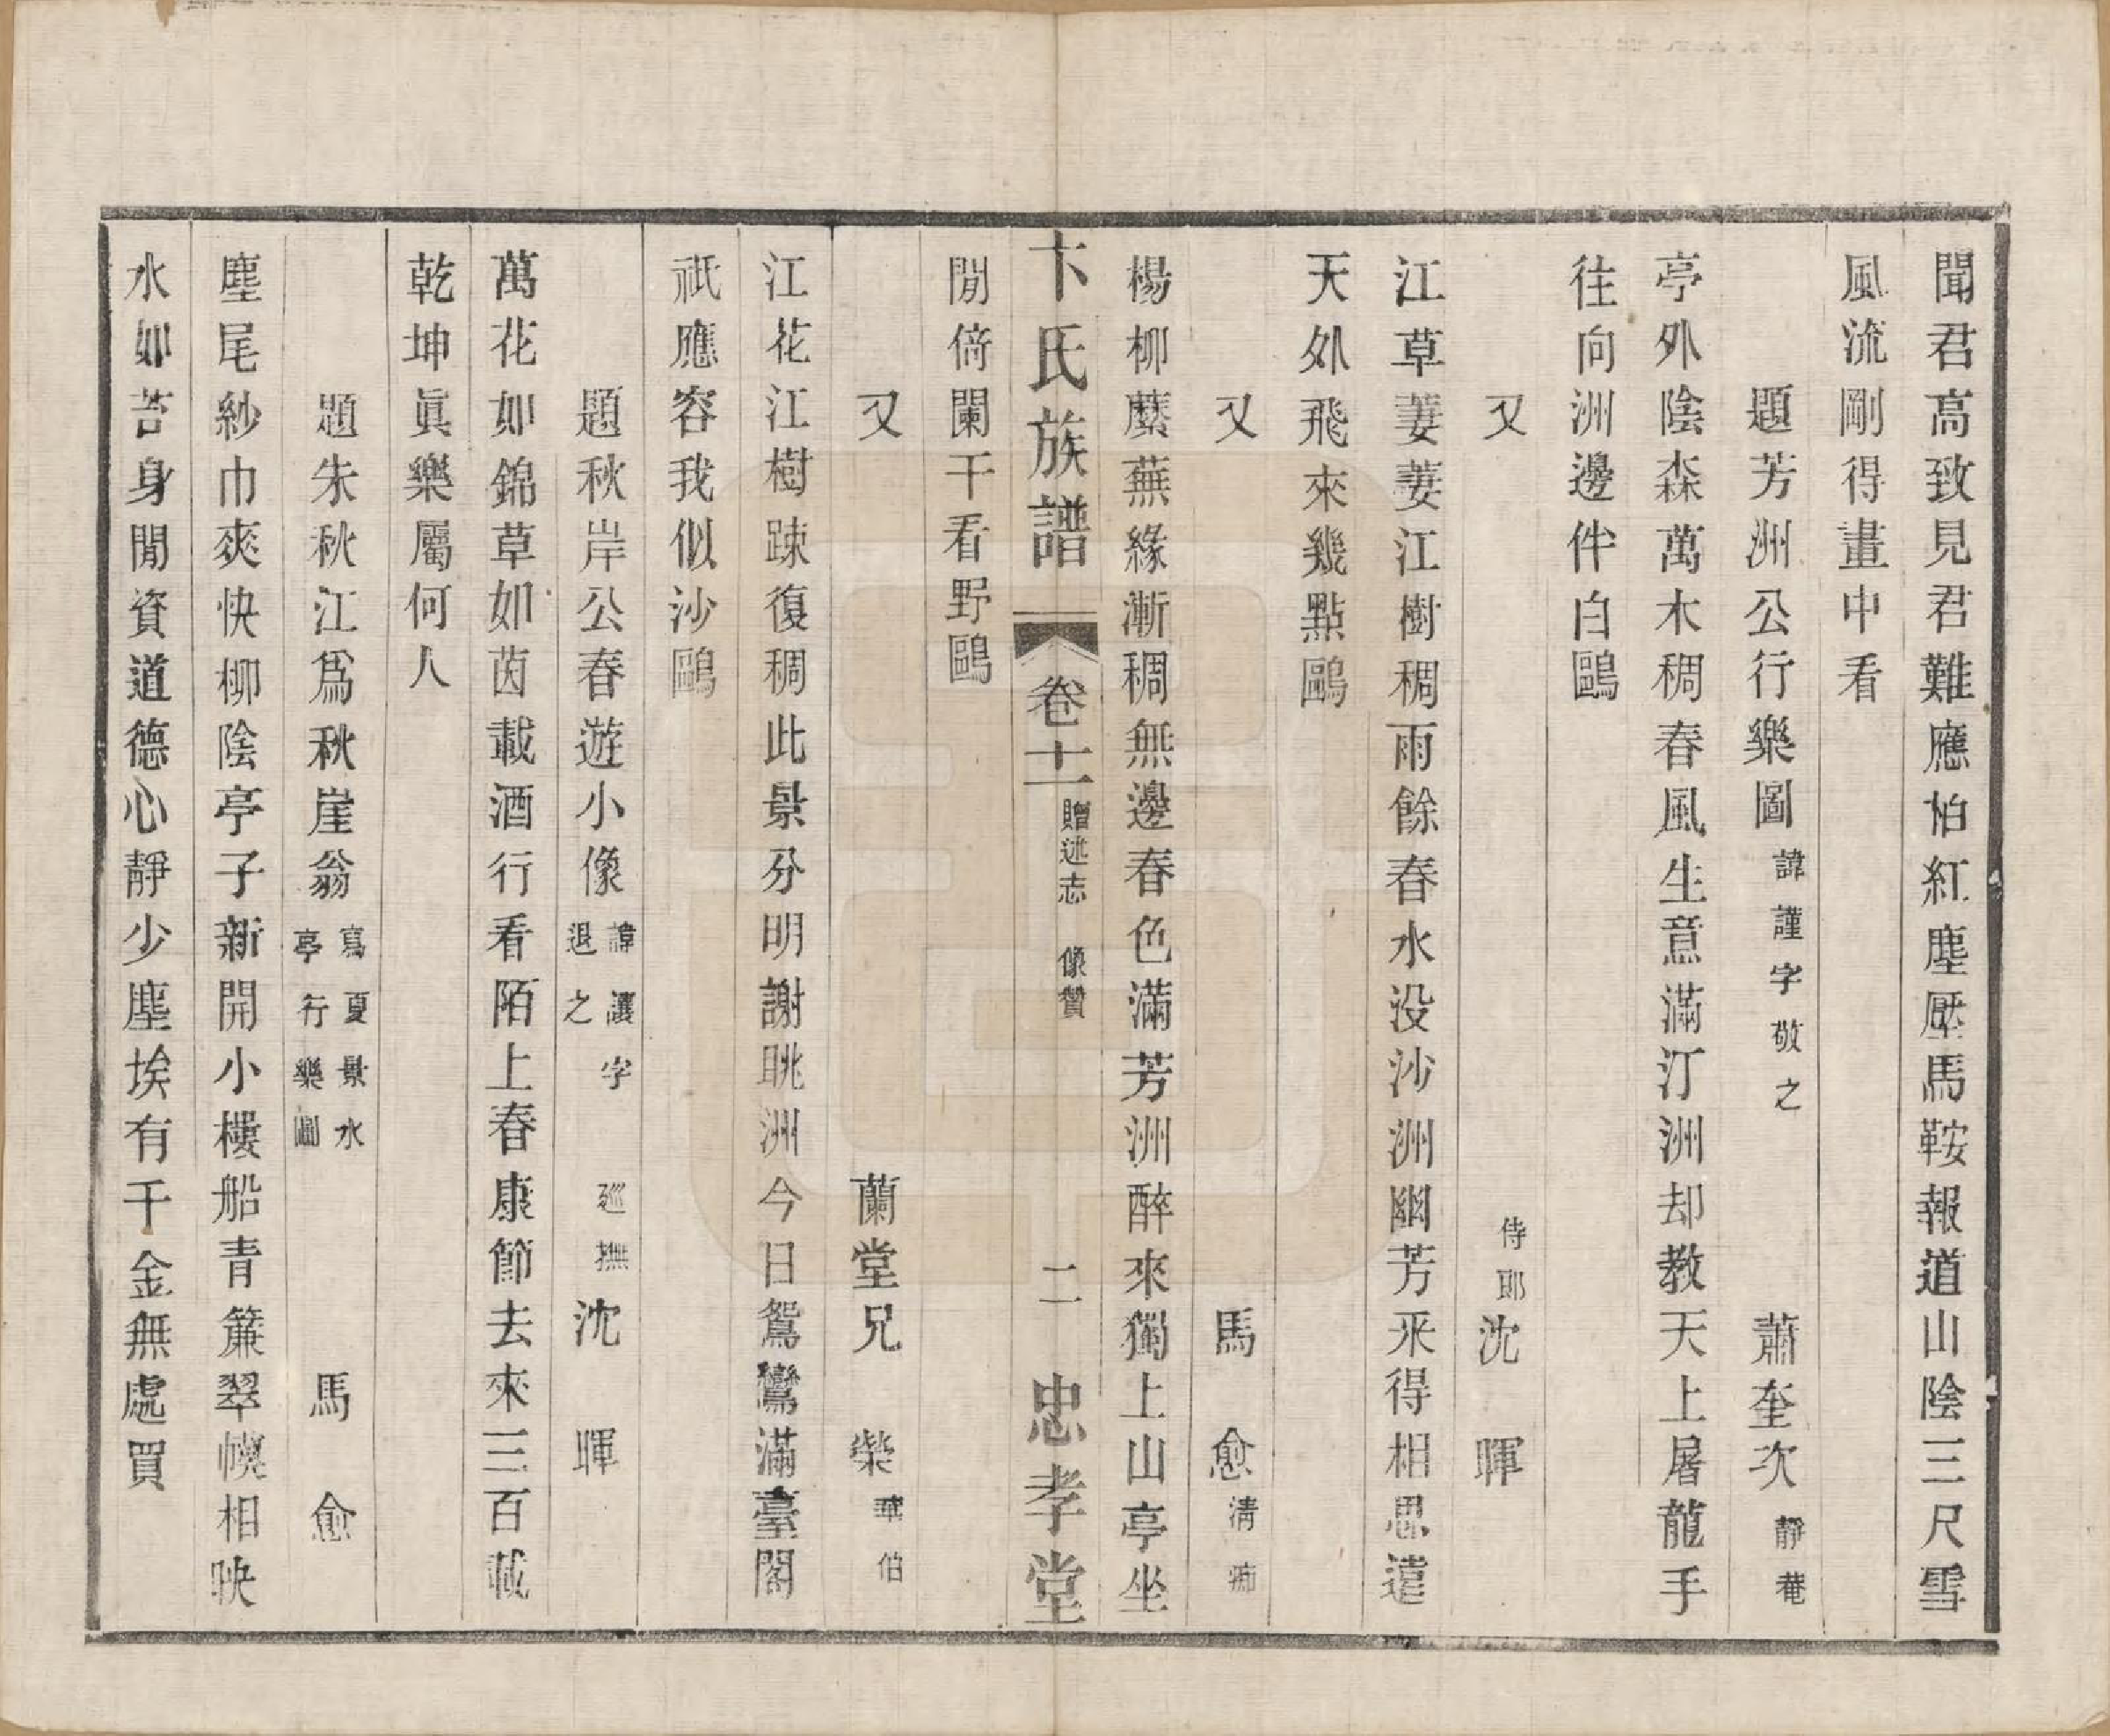 聞君高致見君難應怕紅塵壓馬鞍報道山陰三尺雪
風流剛得畫中看
題芳洲公行樂圖 諱謹字敬之 蕭奎次 靜菴
亭外陰森萬木稠春風生意滿汀洲却教天上屠龍手
往向洲邊伴白鷗
又 侍郎 沈暉
江草萋萋江樹稠雨餘春水没沙洲幽芳采得相思遠
天外飛來幾點鷗
又 馬愈 清痴
楊柳蘪蕪緣漸稠無邊春色滿芳洲醉來獨上山亭坐
卞氏族譜 卷十一 贈述志 像贊 二 忠孝堂
閒倚闌干看野鷗
又 蘭堂兄榮 華伯
江花江樹踈復稠此景分明謝眺洲今日鴛鸞滿臺閣
祇應容我似沙鷗
題秋岸公春遊小像 諱讓字退之 巡撫 沈暉
萬花如錦草如茵載酒行看陌上春康節去來三百載
乾坤眞樂屬何人
題朱秋江爲秋崖翁 寫夏景水亭行樂圖 馬愈
塵尾紗巾爽快柳陰亭子新開小樓船青簾翠幌相映
水如苔身閒資道德心靜少塵埃有千金無處買